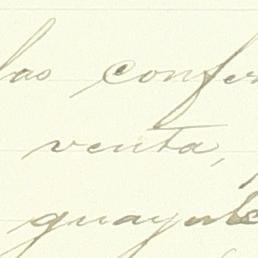 las confer
venta,
guayule